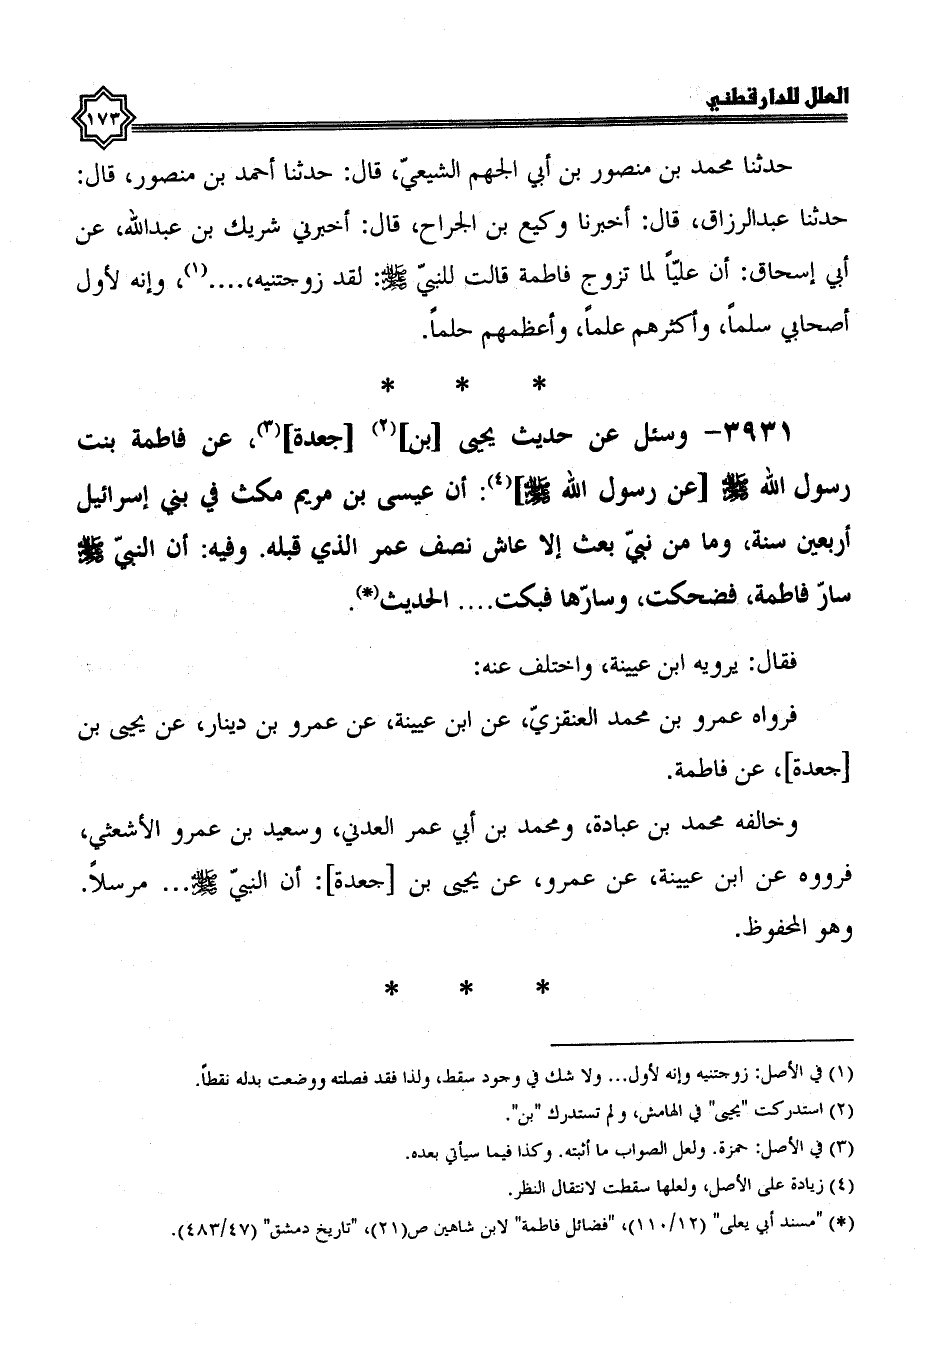 العلل للدارقطني
١٧٣
حدثنا محمد بن منصور بن أبي الجهم الشيعيّ، قال: حدثنا أحمد بن منصور، قال:
حدثنا عبدالرزاق، قال: أخبرنا وكيع بن الجراح، قال: أخبرني شريك بن عبدالله، عن
أبي إسحاق: أن عليّاً لما تزوج فاطمة قالت للنبيّ ﷺ: لقد زوجتنيه،....(١)، وإنه لأول
أصحابي سلماً، وأكثرهم علماً، وأعظمهم حلماً.
* * *
٣٩٣١- وسئل عن حديث يحيى [بن](٢) [جعدة](٣)، عن فاطمة بنت
رسول الله ﷺ [عن رسول الله ﷺ](٤): أن عيسى بن مريم مكث في بني إسرائيل
أربعين سنة، وما من نبيّ بعث إلا عاش نصف عمر الذي قبله. وفيه: أن النبيّ ﷺ
سارّ فاطمة، فضحكت، وسارّها فبكت.... الحديث(*).
فقال: يرويه ابن عيينة، واختلف عنه:
فرواه عمرو بن محمد العنقزيّ، عن ابن عيينة، عن عمرو بن دينار، عن يحيى بن
[جعدة]، عن فاطمة.
وخالفه محمد بن عبادة، ومحمد بن أبي عمر العدني، وسعيد بن عمرو الأشعثي،
فرووه عن ابن عيينة، عن عمرو، عن يحيى بن [جعدة]: أن النبيّ ﷺ... مرسلاً.
وهو المحفوظ.
* * *
(١) في الأصل: زوجتنيه وإنه لأول... ولا شك في وجود سقط، ولذا فقد فصلته ووضعت بدله نقطاً.
(٢) استدركت "يحيى" في الهامش، ولم تستدرك "بن".
(٣) في الأصل: حمزة. ولعل الصواب ما أثبته. وكذا فيما سيأتي بعده.
(٤) زيادة على الأصل، ولعلها سقطت لانتقال النظر.
(*) "مسند أبي يعلى" (١١٠/١٢)، "فضائل فاطمة" لابن شاهين ص(٢١)، "تاريخ دمشق" (٤٨٣/٤٧).